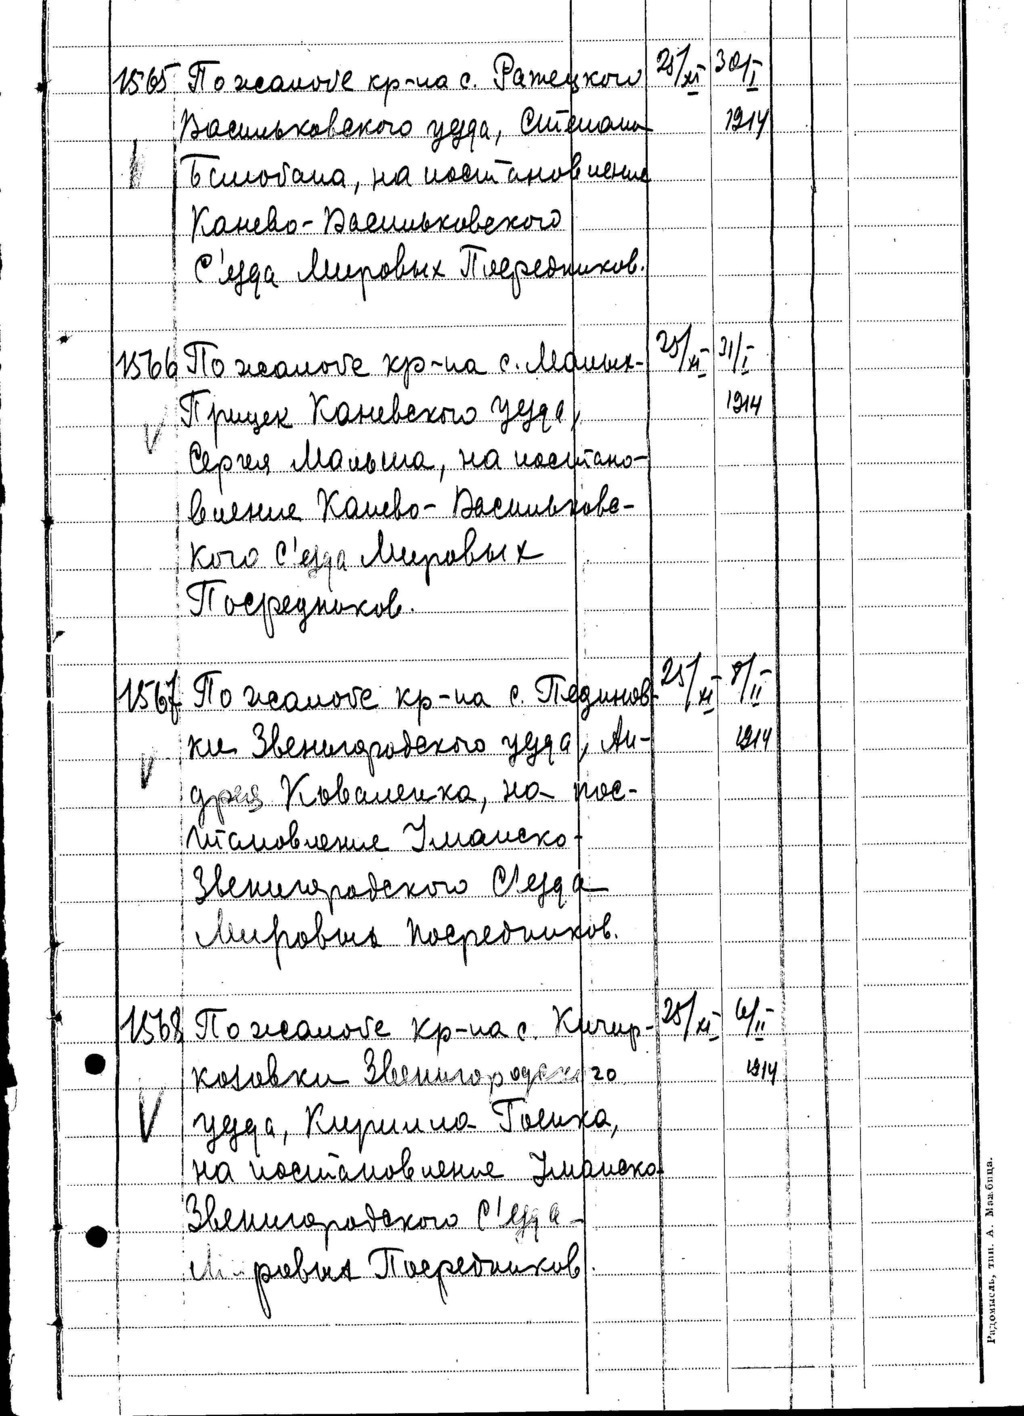 1565 По жалобе кр-на с. Ражецкого 25/XI 30/I
Васильковского уезда, Степана 1914
Балобана, на постановление
Канево-Васильковского
С'езда Мировых Посредников.
1566 По жалобе кр-на с. Малых- 25/XI 31/I
Прицек Каневского уезда, 1914
Сергея Малыша, на постано-
вление Канево-Васильковс-
кого С'езда Мировых
Посредников.
1567 По жалобе кр-на с. Пединов- 25/XI 8/II
ки Звенигородского уезда, Ан- 1914
дрея Коваленка, на пос-
тановление Уманско-
Звенигородского С'езда
Мировых посредников.
1568 По жалобе кр-на с. Кичир- 25/XI 6/II
козовки Звенигородского 1914
уезда, Кирилла Гоенка,
на постановление Уманско
Звенигородского С'езда
Мировых Посредников.
Радомысль, тип. А. Мазбица.